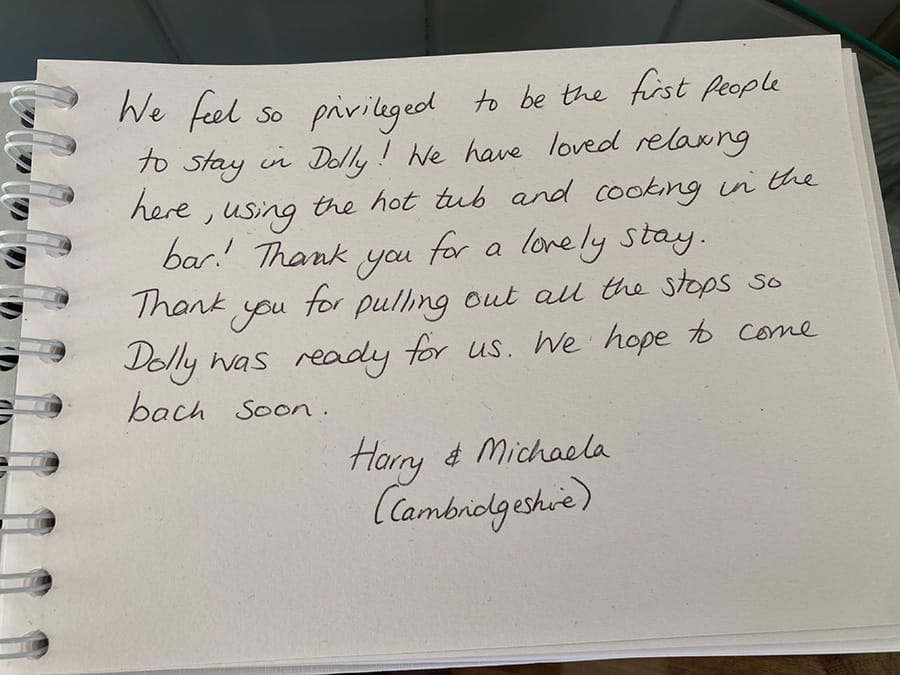 We feel so privileged to be the first people
to stay in Dolly! We have loved relaxing
here, using the hot tub and cooking in the
bar! Thank you for a lovely stay.
Thank you for pulling out all the stops so
Dolly was ready for us. We hope to come
back soon.
Harry & Michaela
(Cambridgeshire)